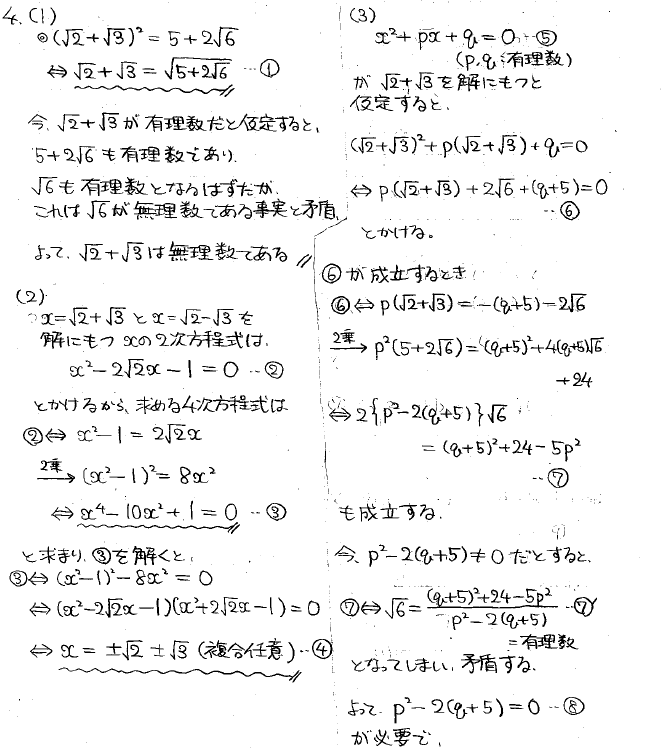 4. (1)
◎(√2+√3)² = 5+2√6
⇔ √2+√3 = √(5+2√6) …①
今、√2+√3 が 有理数だと仮定すると、
5+2√6 も有理数であり、
√6 も 有理数となるはずだが、
これは √6 が 無理数である事実と矛盾
よって、√2+√3 は 無理数である
(2)
x=√2+√3 と x=√2-√3 を
解にもつ xの2次方程式は、
x²-2√2x-1=0 …②
とかけるから、求める4次方程式は
②⇔ x²-1 = 2√2x
2乗→ (x²-1)² = 8x²
⇔ x⁴-10x²+1=0 …③
と求まり、③を解くと、
③⇔ (x²-1)²-8x² = 0
⇔ (x²-2√2x-1)(x²+2√2x-1)=0
⇔ x = ±√2 ±√3 (複合任意)…④
(3)
x²+px+q=0 …⑤
(p,q:有理数)
が √2+√3 を解にもつと
仮定すると、
(√2+√3)²+p(√2+√3)+q=0
⇔ p(√2+√3)+2√6+(q+5)=0
…⑥
とかける。
⑥が成立するとき
⑥⇔ p(√2+√3) = -(q+5)-2√6
2乗→ p²(5+2√6) = (q+5)²+4(q+5)√6
+24
⇔ 2{p²-2(q+5)}√6
= (q+5)²+24-5p²
…⑦
も成立する.
今、p²-2(q+5)≠0 だとすると、
⑦⇔ √6 = ((q+5)²+24-5p²)/(p²-2(q+5)) …⑦'
=有理数
となってしまい、矛盾する.
よって、p²-2(q+5)=0 …⑧
が必要で、